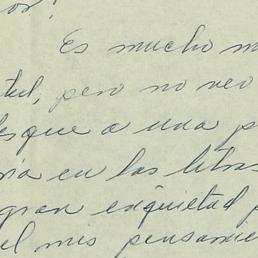 os!
Es mucho m
tud, pero no veo
es que a una p
ria en las letras
gran enquietad p
el mis pensamie